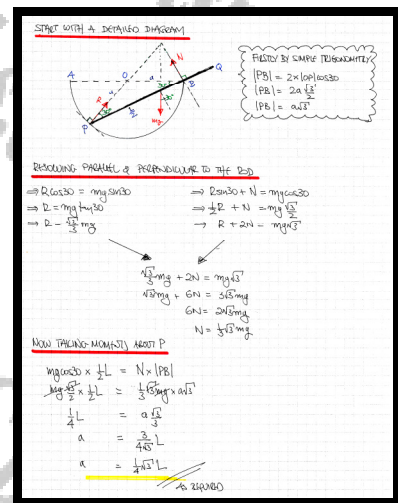 START WITH A DETAILED DIAGRAM
A O a B Q
R N P mg
30° 30°
FIRSTLY BY SIMPLE TRIGONOMETRY
|PB| = 2×|OP|cos30
|PB| = 2a √3/2
|PB| = a√3
RESOLVING PARALLEL & PERPENDICULAR TO THE ROD
⇒ Rcos30 = mg sin30
⇒ R = mg tan30
⇒ R = √3/3 mg
⇒ Rsin30 + N = mgcos30
⇒ ½R + N = mg √3/2
→ R + 2N = mg√3
√3/3 mg + 2N = mg√3
√3mg + 6N = 3√3mg
6N = 2√3mg
N = ⅓√3mg
NOW TAKING MOMENTS ABOUT P
mgcos30 × ½L = N × |PB|
mg √3/2 × ½L = ⅓√3mg × a√3
¼L = a √3/3
a = 3/4√3 L
a = ¼√3 L
AS REQUIRED